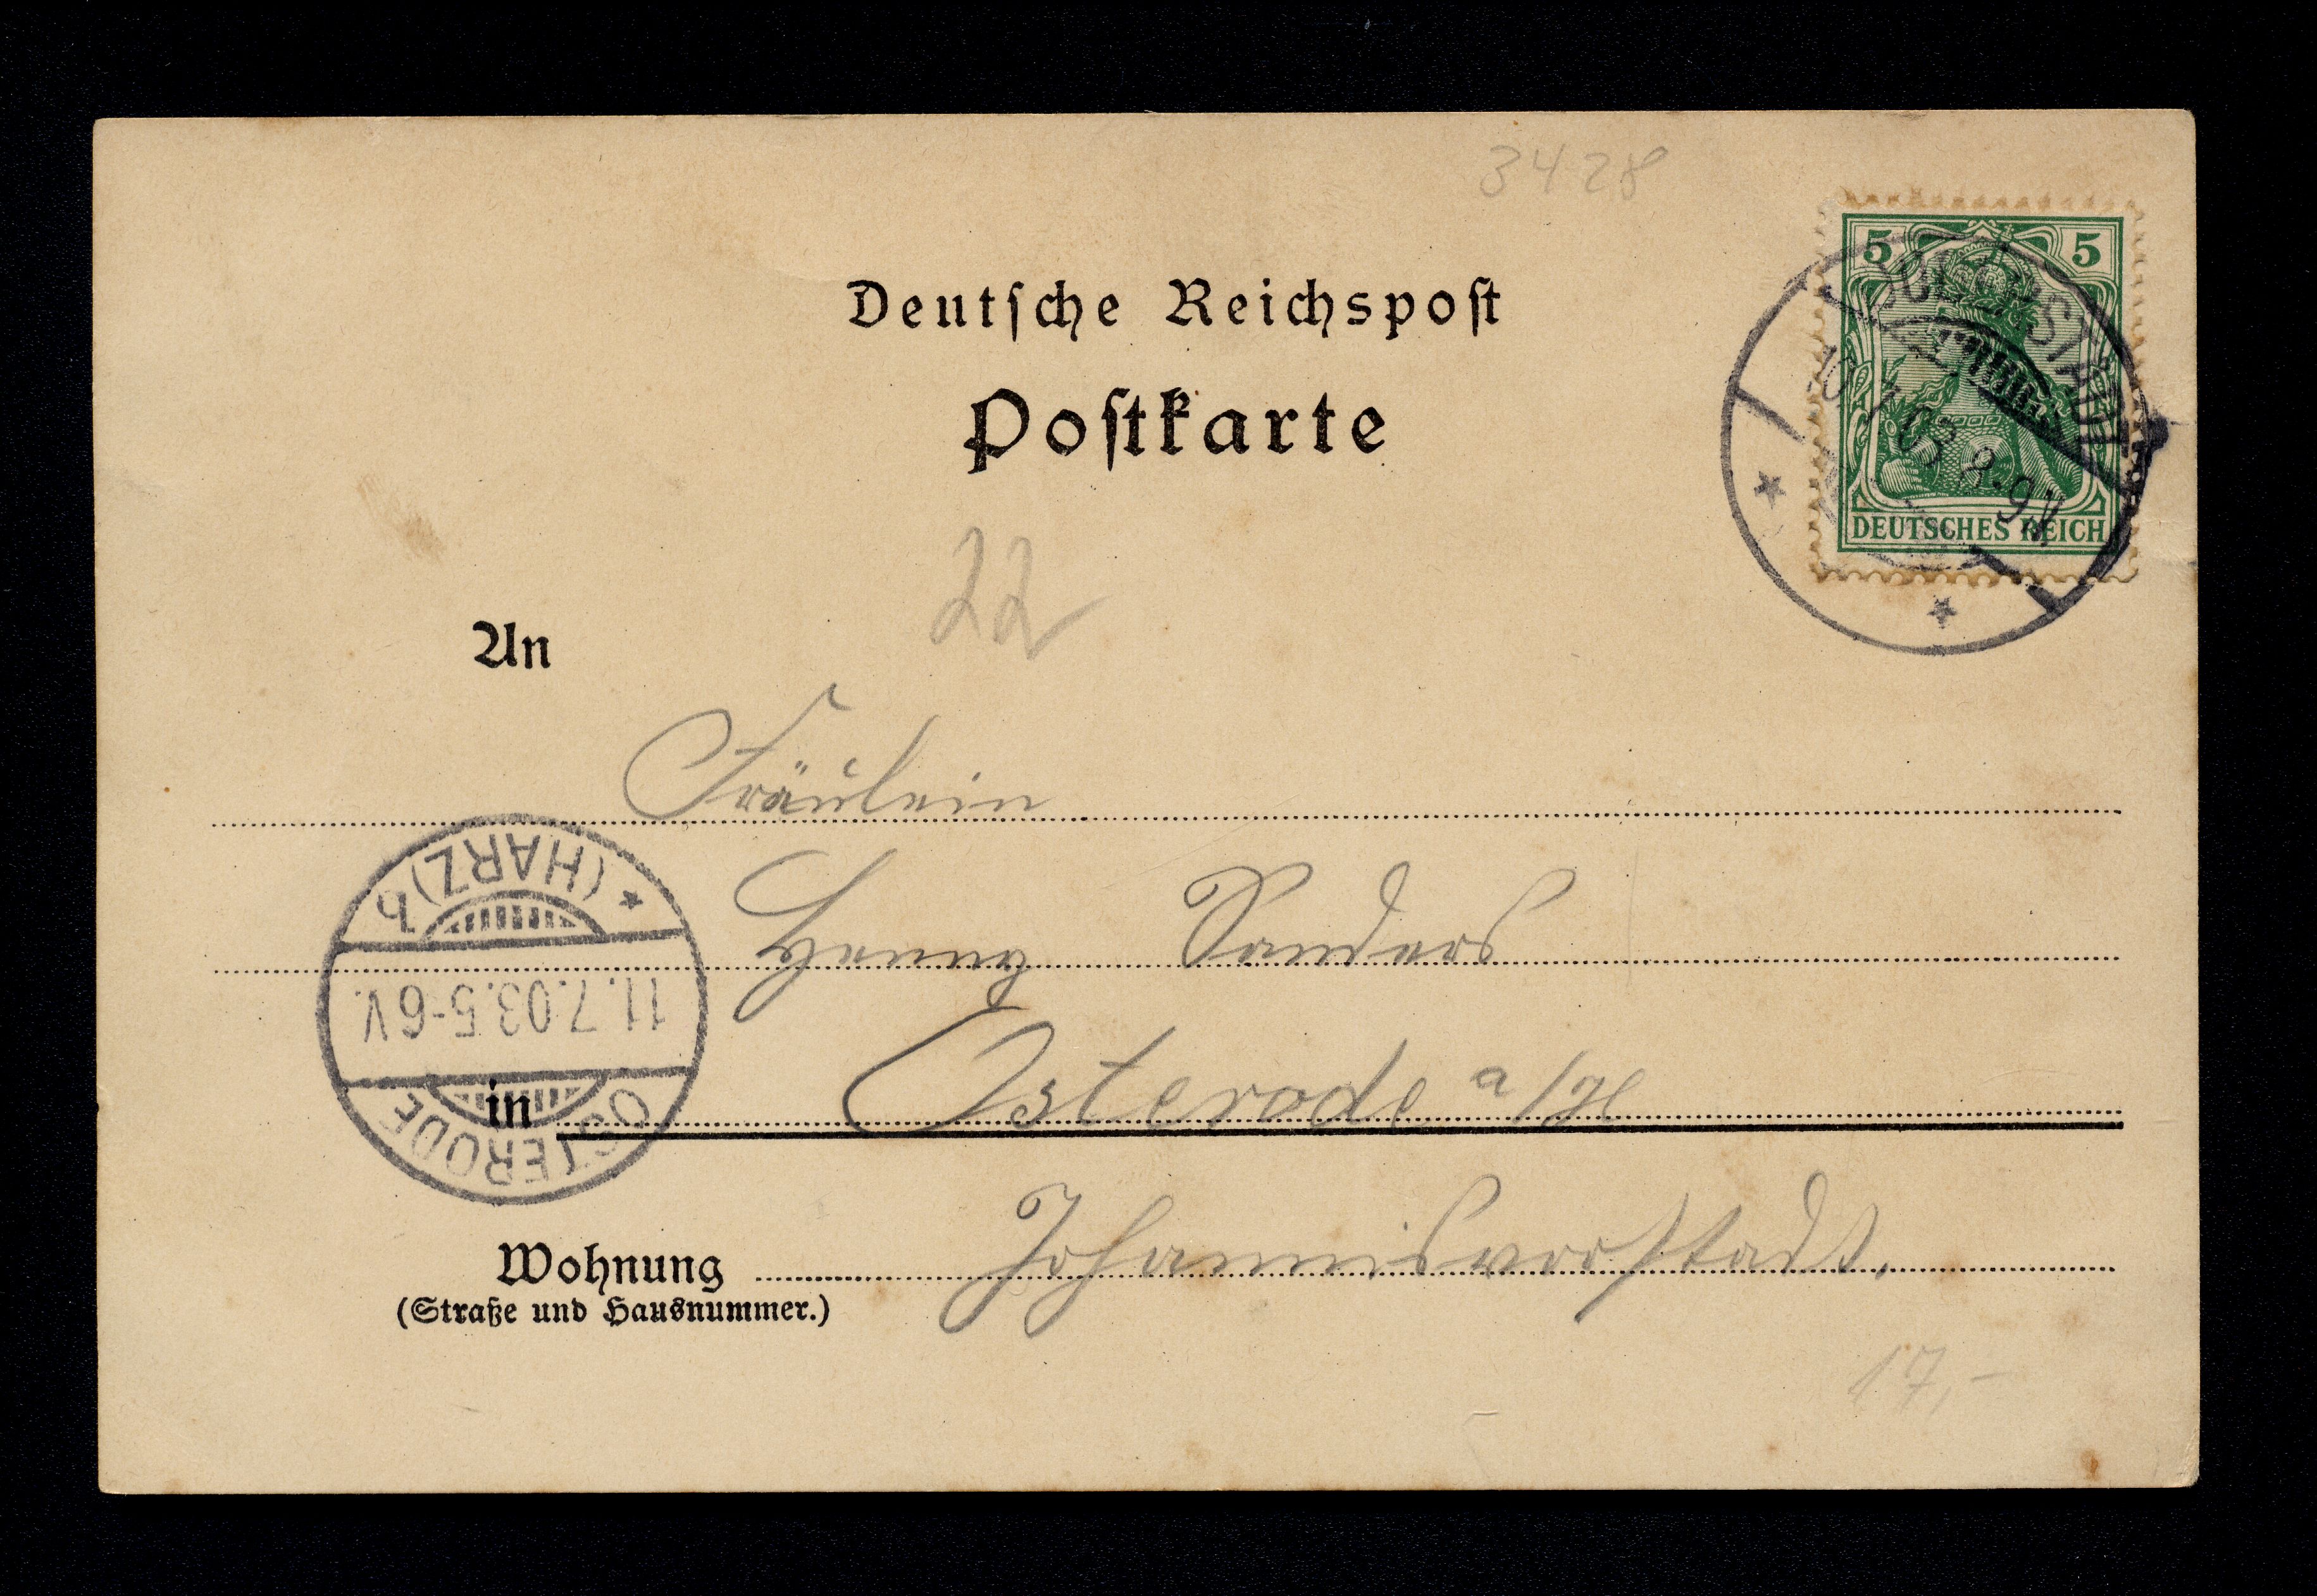 3428
Deutsche Reichspost
Postkarte
5 5
DEUTSCHES REICH
10.7.03 8-9N
22
An
Fräulein
Henny Sanders
OSTERODE
(HARZ) b
11.7.03.5-6V.
in Osterode a/H
Wohnung Johannisvorstadt.
(Straße und Hausnummer.)
17,-